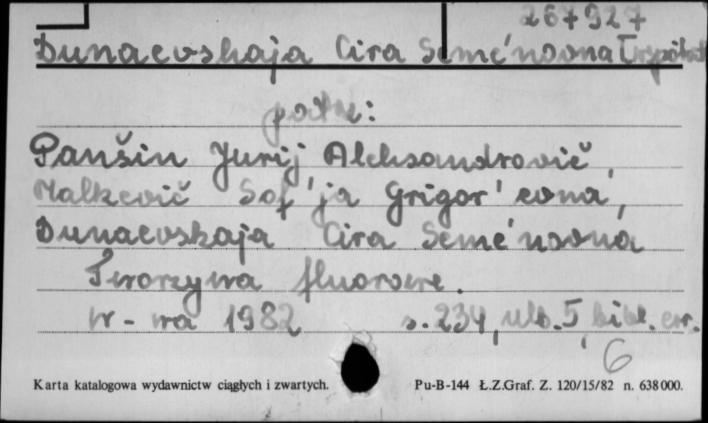 267927
Dunaevskaja Cira Semë'novna [współaut
patrz:
Panšin Jurij Aleksandrovič,
Malkevič Sof'ja Grigor'evna,
Dunaevskaja Cira Semë'novna
Tworzywa fluorowe.
W-wa 1982 s. 234, ulb. 5, bibl. err.
6
Karta katalogowa wydawnictw ciągłych i zwartych. Pu-B-144 Ł.Z.Graf. Z. 120/15/82 n. 638000.